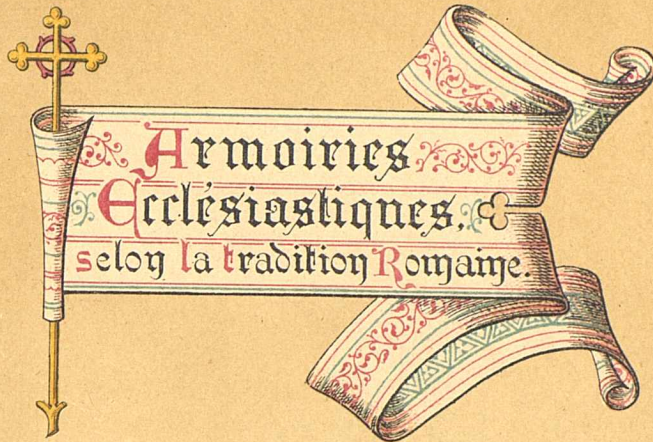 Armoiries
Ecclésiastiques.
selon la tradition Romaine.